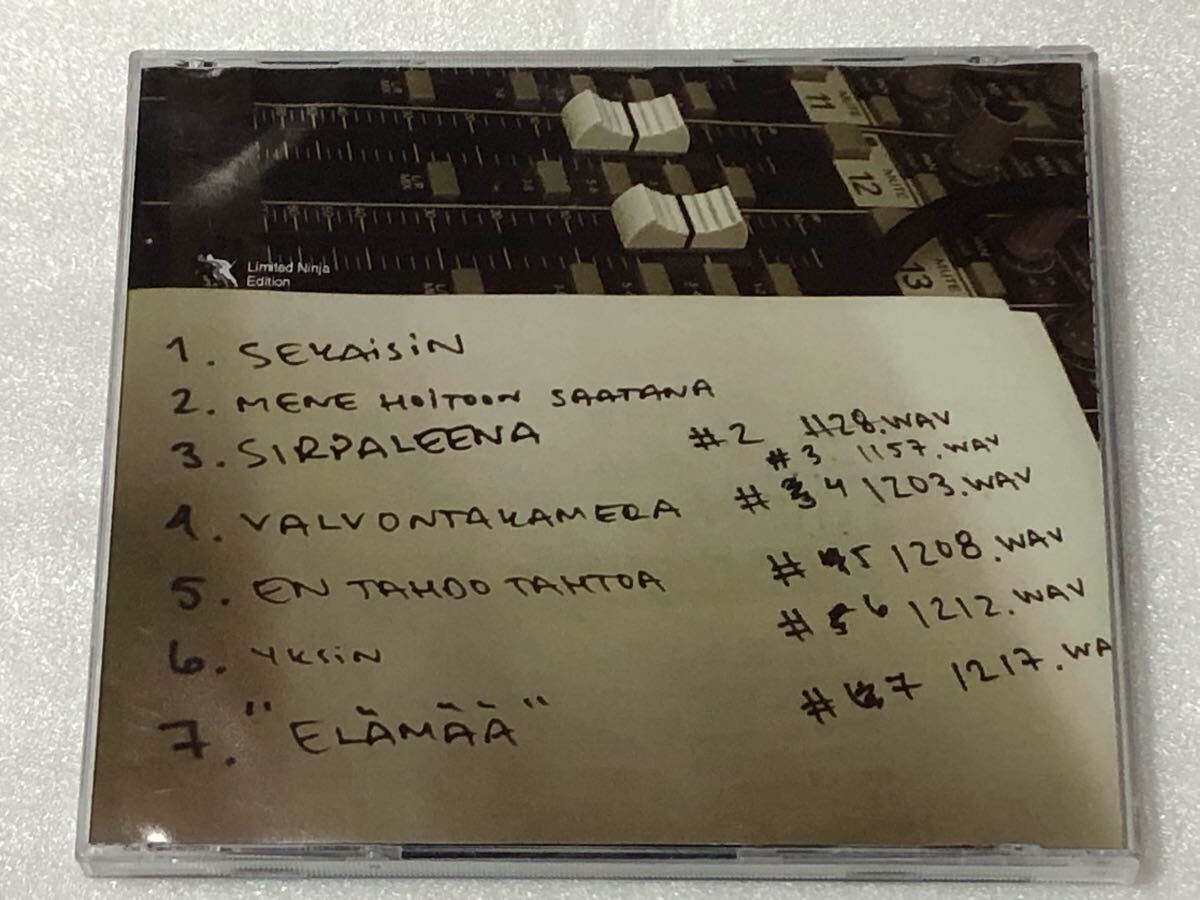 11
MUTE
12
MUTE
13
MUTE
Limited Ninja
Edition
1. SEKAISIN
2. MENE HOITOON SAATANA
3. SIRPALEENA #2 1128.WAV
#3 1157.WAV
4. VALVONTAKAMERA #4 1203.WAV
5. EN TAHDO TAHTOA #5 1208.WAV
6. YKSIN #6 1212.WAV
7. "ELÄMÄÄ" #7 1217.WA